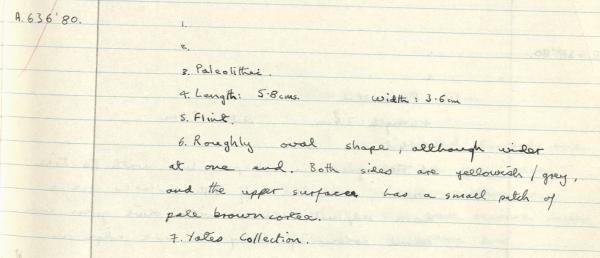 A.636'80.
1.
2.
3. Paleolithic.
4. Length: 5.8cms. Width: 3.6cm
5. Flint.
6. Roughly oval shape, although wider
at one end. Both sides are yellowish/grey,
and the upper surface has a small patch of
pale brown cortex.
7. Yates Collection.